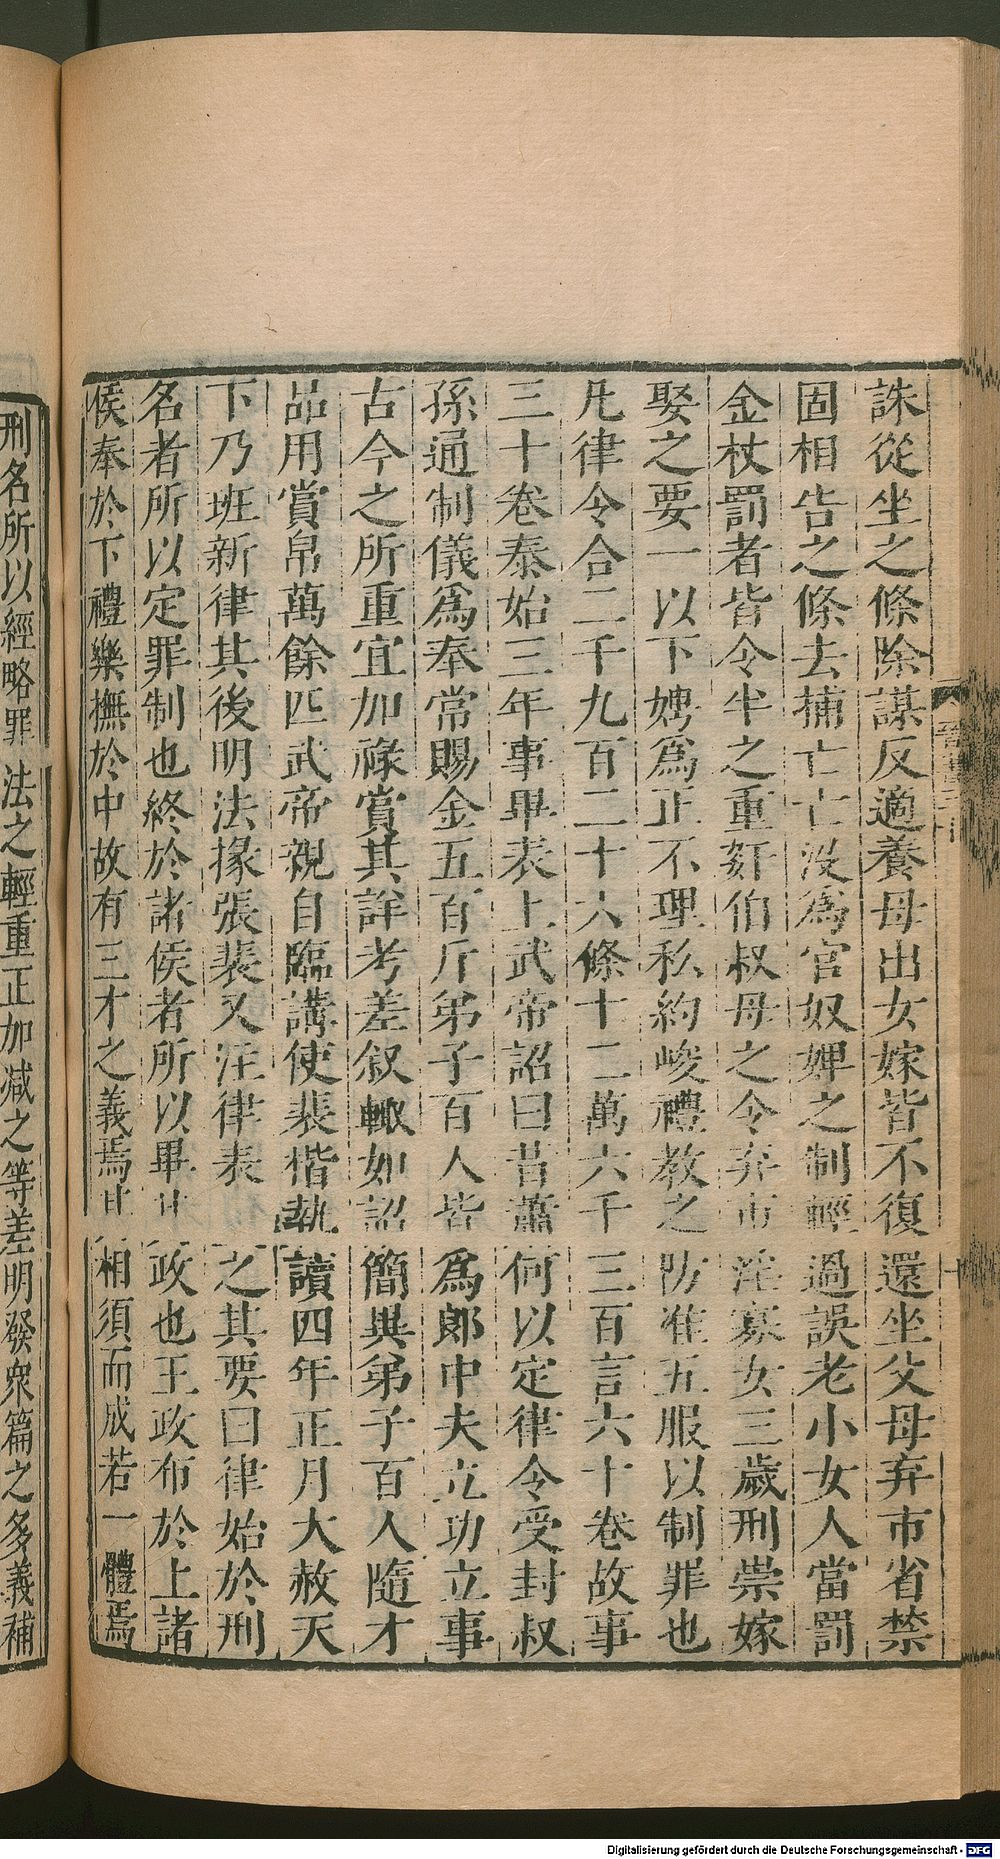 誅從坐之條除謀反適養母出女嫁皆不復還坐父母弃市省禁
固相告之條去捕亡亡沒爲官奴婢之制輕過誤老小女人當罰
金杖罰者皆令半之重姧伯叔母之令弃市淫寡女三歲刑崇嫁
娶之要一以下娉爲正不理私約峻禮教之防准五服以制罪也
凡律令合二千九百二十六條十二萬六千三百言六十卷故事
三十卷泰始三年事畢表上武帝詔曰昔蕭何以定律令受封叔
孫通制儀爲奉常賜金五百斤弟子百人皆爲郎中夫立功立事
古今之所重宜加祿賞其詳考差叙輙如詔簡與弟子百人隨才
品用賞帛萬餘匹武帝親自臨講使裴楷執讀四年正月大赦天
下乃班新律其後明法掾張裴又注律表之其要曰律始於刑
名者所以定罪制也終於諸侯者所以畢其政也王政布於上諸
侯奉於下禮樂撫於中故有三才之義焉其相須而成若一體焉
刑名所以經略罪法之輕重正加減之等差明發衆篇之多義補
Digitalisierung gefördert durch die Deutsche Forschungsgemeinschaft - DFG